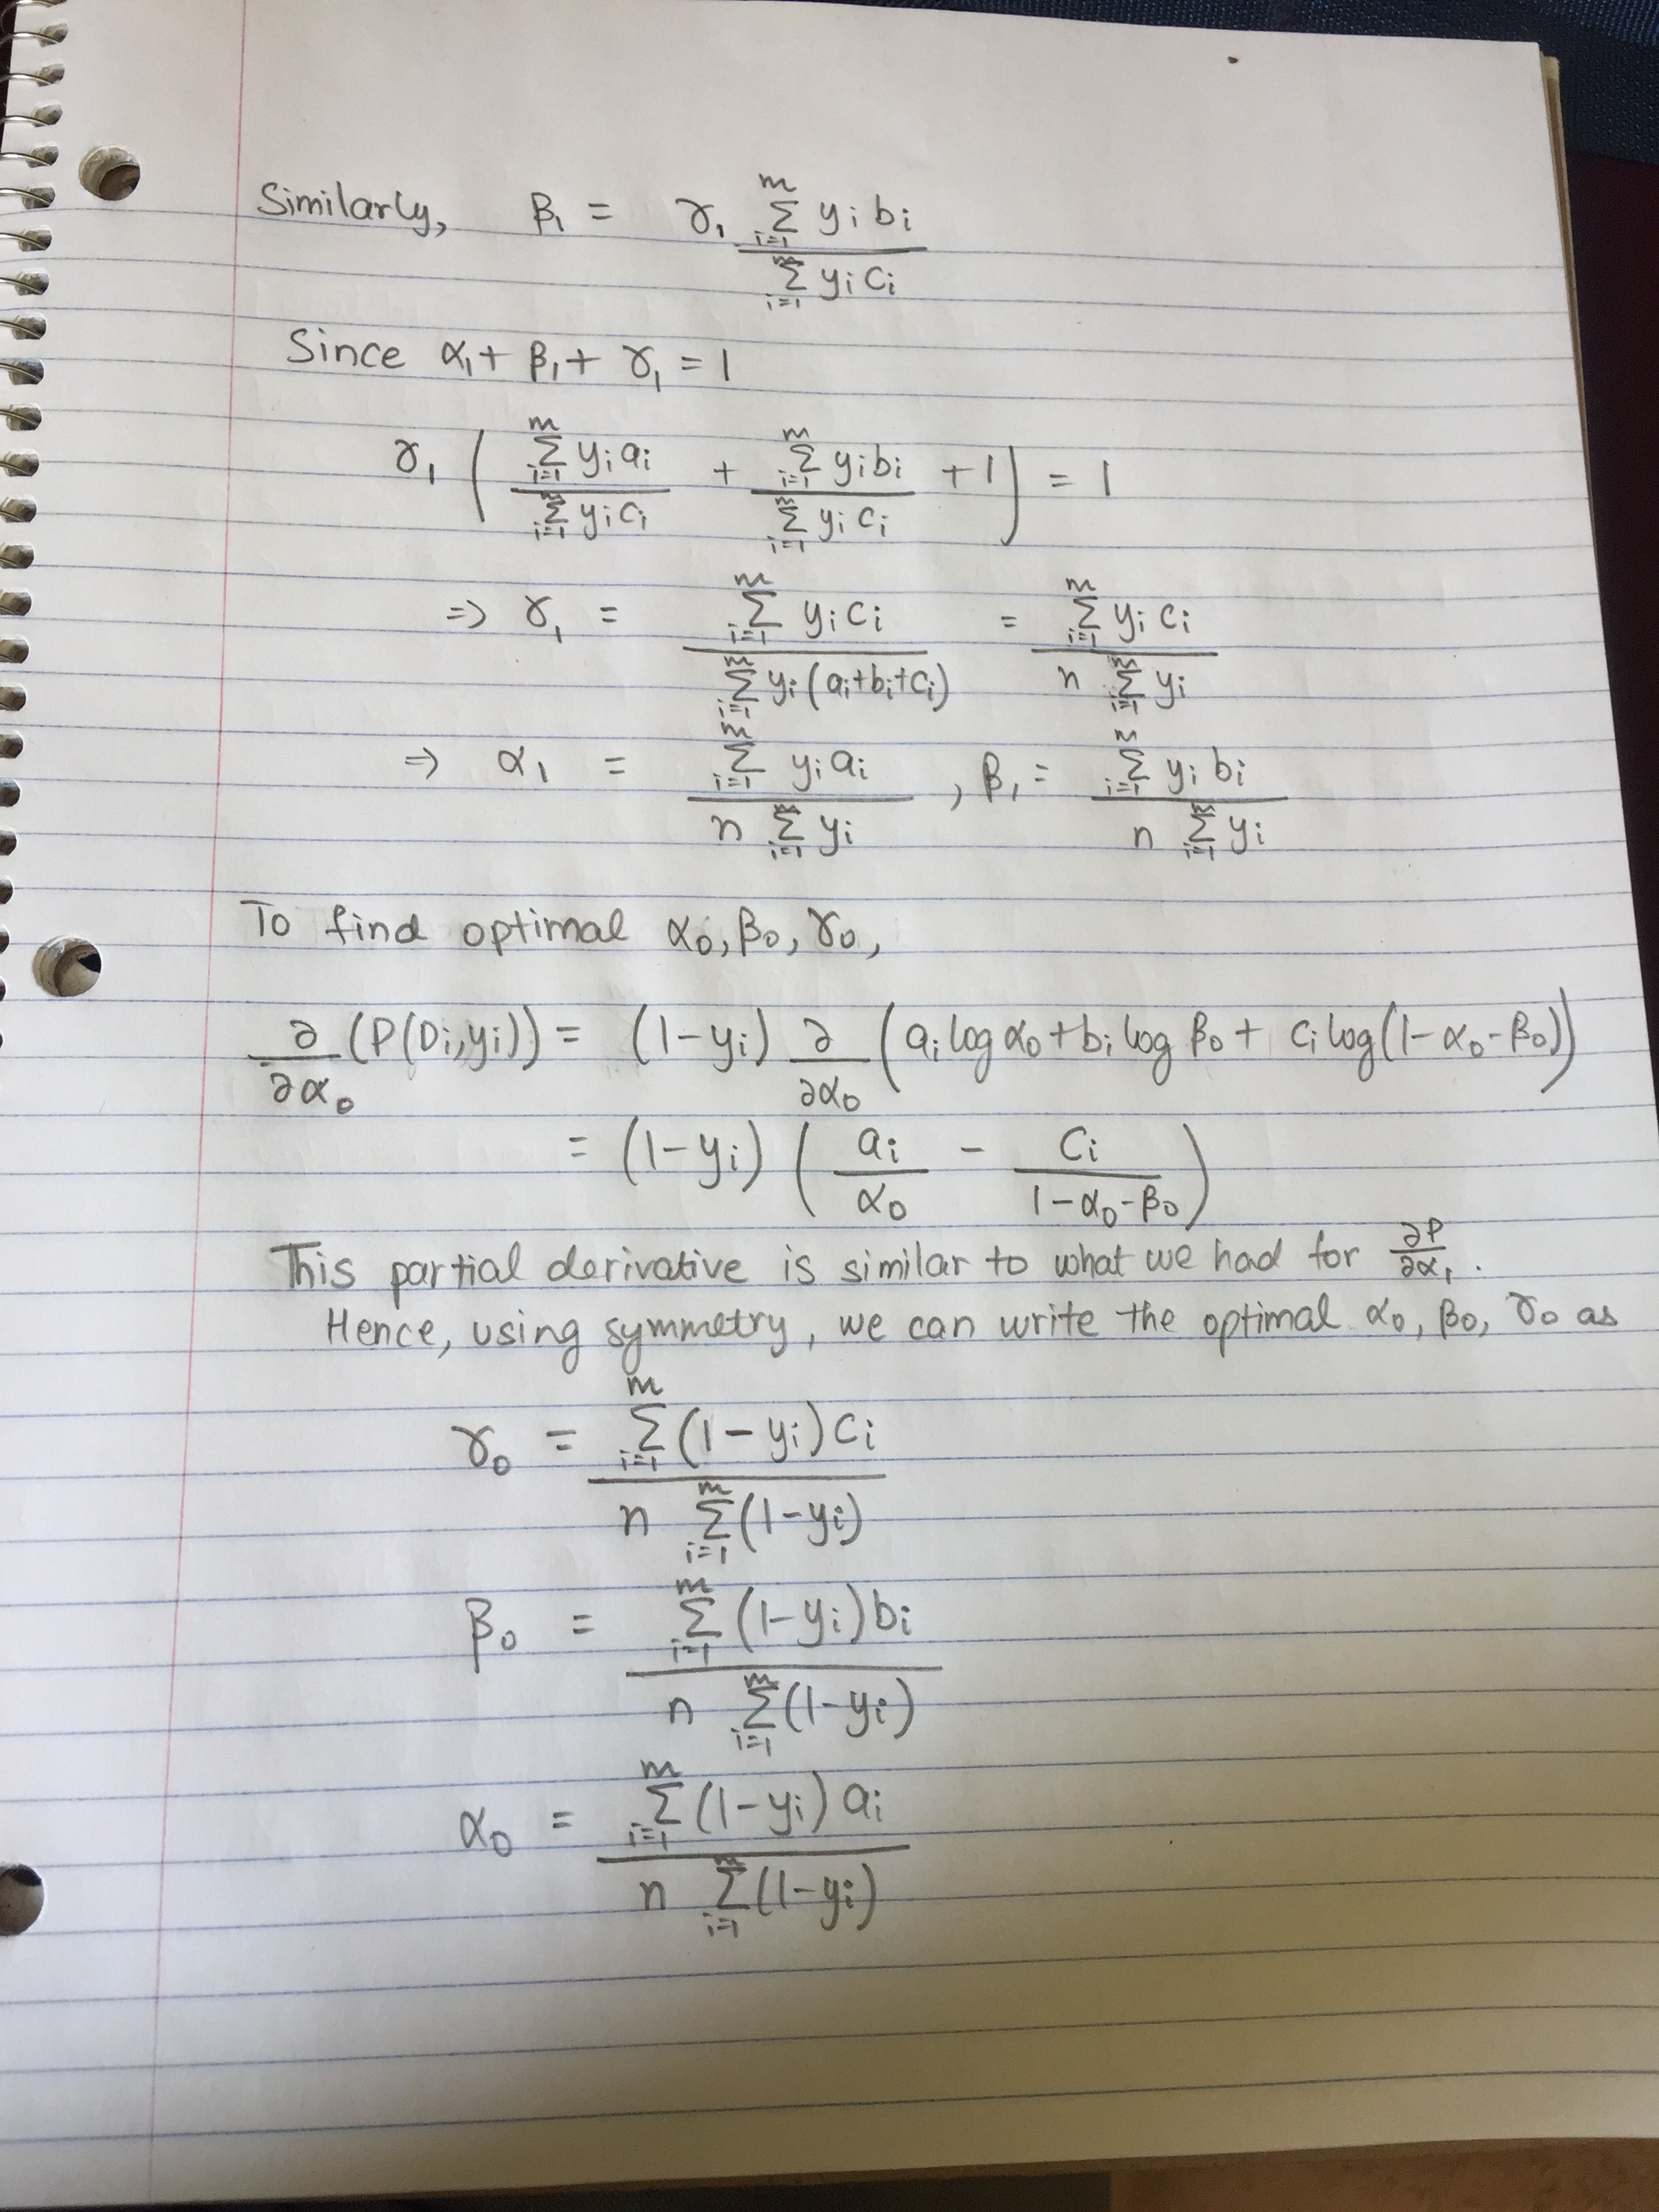 Similarly, β₁ = γ₁ \frac{\sum_{i=1}^{m} y_i b_i}{\sum_{i=1}^{m} y_i c_i}
Since α₁ + β₁ + γ₁ = 1
γ₁ ( \frac{\sum_{i=1}^{m} y_i a_i}{\sum_{i=1}^{m} y_i c_i} + \frac{\sum_{i=1}^{m} y_i b_i}{\sum_{i=1}^{m} y_i c_i} + 1 ) = 1
=> γ₁ = \frac{\sum_{i=1}^{m} y_i c_i}{\sum_{i=1}^{m} y_i (a_i + b_i + c_i)} = \frac{\sum_{i=1}^{m} y_i c_i}{n \sum_{i=1}^{m} y_i}
=> α₁ = \frac{\sum_{i=1}^{m} y_i a_i}{n \sum_{i=1}^{m} y_i} , β₁ = \frac{\sum_{i=1}^{m} y_i b_i}{n \sum_{i=1}^{m} y_i}
To find optimal α₀, β₀, γ₀,
\frac{∂}{∂α₀} (P(D_i, y_i)) = (1 - y_i) \frac{∂}{∂α₀} (a_i log α₀ + b_i log β₀ + c_i log(1 - α₀ - β₀))
= (1 - y_i) ( \frac{a_i}{α₀} - \frac{c_i}{1 - α₀ - β₀} )
This partial derivative is similar to what we had for \frac{∂P}{∂α₁}.
Hence, using symmetry, we can write the optimal α₀, β₀, γ₀ as
γ₀ = \frac{\sum_{i=1}^{m} (1 - y_i) c_i}{n \sum_{i=1}^{m} (1 - y_i)}
β₀ = \frac{\sum_{i=1}^{m} (1 - y_i) b_i}{n \sum_{i=1}^{m} (1 - y_i)}
α₀ = \frac{\sum_{i=1}^{m} (1 - y_i) a_i}{n \sum_{i=1}^{m} (1 - y_i)}